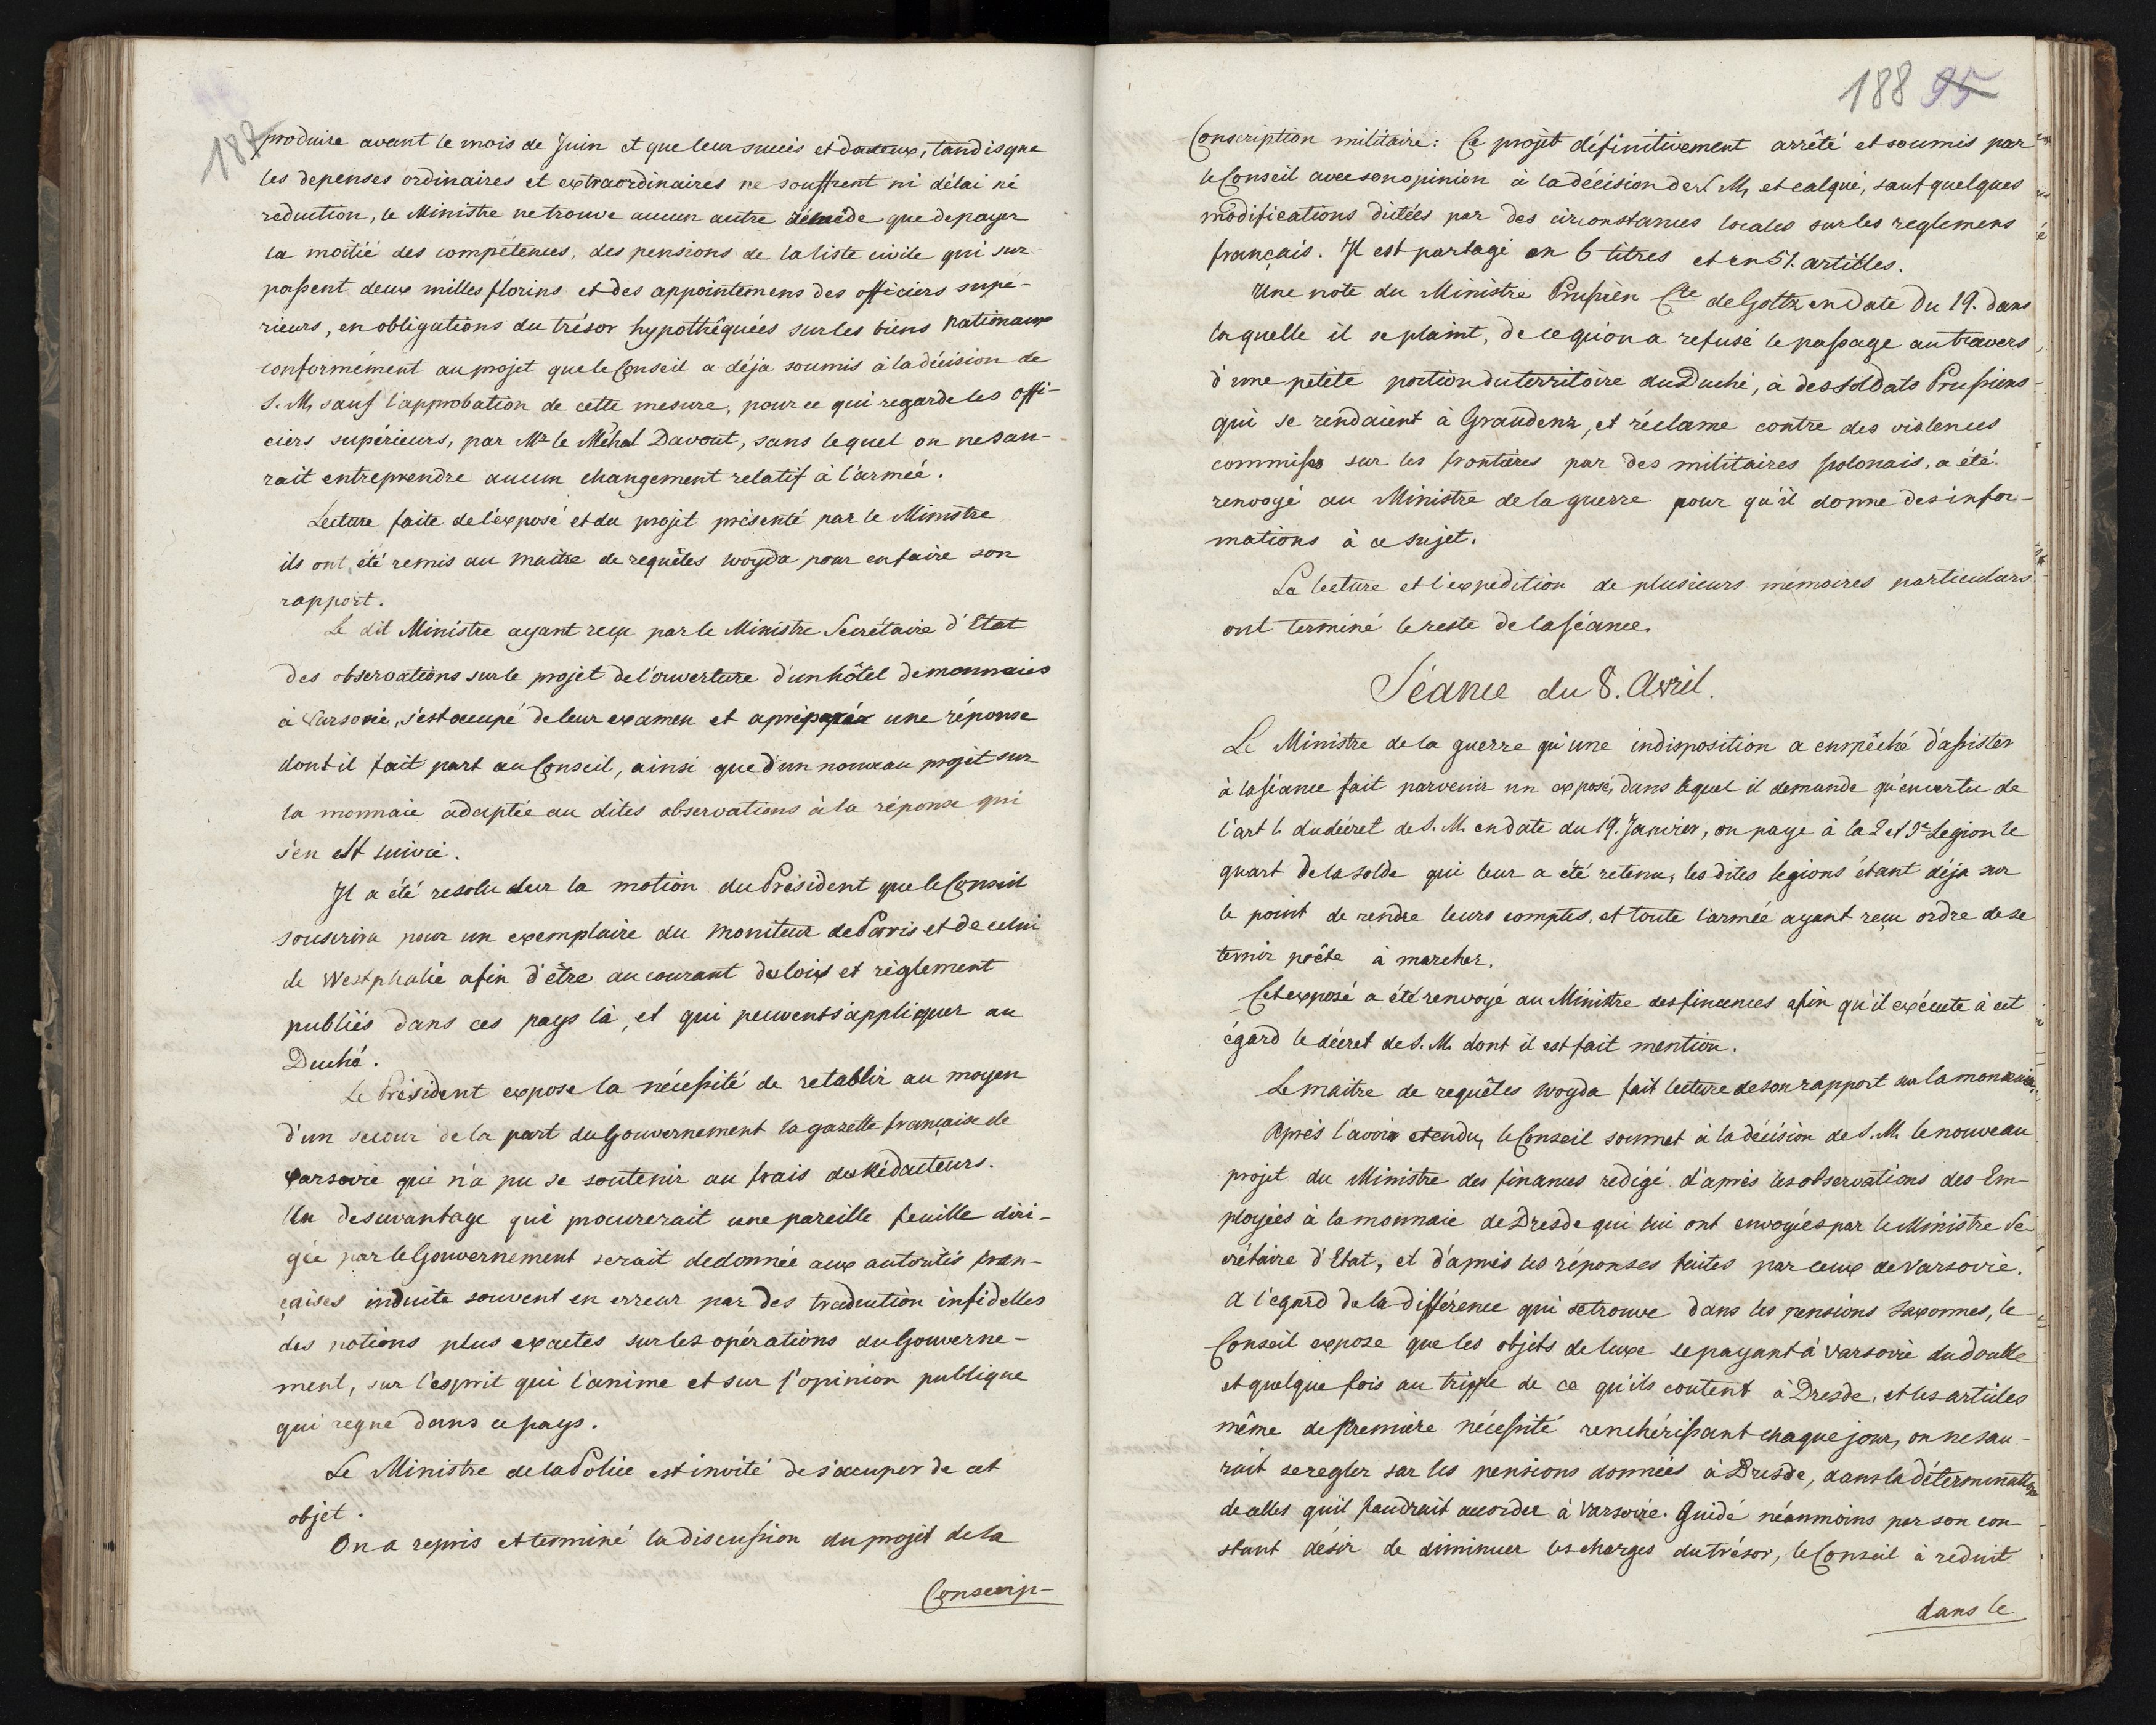 187
produire avant le mois de Juin et que leur succès et douteux, tandisque
les depenses ordinaires et extraordinaires ne souffrent ni délai ni
reduction, le Ministre ne trouve aucun autre que de payer
la moitié des compétences, des pensions de la liste civile qui sur
passent deux milles florins et des appointemens des officiers supé-
rieurs, en obligations du trésor hypothêquées sur les biens nationaux
conformément au projet que le Conseil a déja soumis à la décision de
S. M. sauf l'approbation de cette mesure, pour ce qui regarde les offi-
ciers supérieurs, par Mr le Méhal Davout, sans lequel on ne sau-
rait entreprendre aucun changement relatif à l'armeé.
Lecture faite de l'exposé et du projet présenté par le Ministre
ils ont été remis au maitre de requêtes woyda pour en faire son
rapport.
Le dit Ministre ayant reçu par le Ministre Secrétaire d'Etat
des observations sur le projet de l'ouverture d'un hôtel de monnaies
à Varsovie, s'est occupé de leur examen et a préparé une réponse
dont il fait part au Conseil, ainsi que d'un nouveau projet sur
la monnaie adaptée au dites observations à la réponse qui
s'en est suivie.
Il a été resolu sur la motion du Président que le Conseil
souscrira pour un exemplaire du moniteur de Paris et de celui
de Westphalie afin d'être au courant des loix et règlement
publiés dans ces pays là, et qui peuvent s'appliquer au
Duché.
Le Président expose la nécessité de retablir au moyen
d'un secour de la part du Gouvernement la gazette française de
varsovie qui n'a pu se soutenir au frais des Rédacteurs.
Un desavantage qui procurerait une pareille feuille diri-
gée par le Gouvernement serait de donnée aux autorités fran-
çaises induite souvent en erreur par des traduction infidelles
des notions plus exactes sur les opérations du Gouverne-
ment, sur l'esprit qui l'anime et sur l'opinion publique
qui regne dans ce pays.
Le Ministre de la Police est invité de s'occuper de cet
objet.
On a repris et terminé la discussion du projet de la
Conscrip-
188 95
Conscription militaire: Ce projet définitivement arrêté et soumis par
le Conseil avec son opinion à la décision de S. M, et calqué, sauf quelques
modifications dictées par des circonstances locales sur les reglemens
français. Il est partagé en 6 titres et en 51. articles.
Une note du Ministre Prussien Cte de Goltz en date du 19. dans
laquelle il se plaint, de ce qu'on a refusé le passage au travers
d'une petite portion du territoire du Duché, à des soldats Prussiens
qui se rendaient à Graudenz, et réclame contre des violences
commises sur les frontières par des militaires polonais, a été
renvoyé au Ministre de la guerre pour qu'il donne des infor-
mations à ce sujet.
La lecture et l'expedition de plusieurs mémoires particuliers
ont terminé le reste de la séance.
Séance du 8. Avril.
Le Ministre de la guerre qu'une indisposition a empêché d'assister
à la séance fait parvenir un exposé, dans lequel il demande qu'en vertu de
l'art 6 du décret de S. M. en date du 19. Janvier, on paye à la 2 et 3e Legion le
quart de la solde qui leur a été retenu, les dites legions étant déja sur
le point de rendre leurs comptes, et toute l'armée ayant reçu ordre de se
tenir prête à marcher.
Cet exposé a été renvoyé au Ministre des finances afin qu'il exécute à cet
égard le décret de S. M. dont il est fait mention.
Le maitre de requêtes woyda fait lecture de son rapport sur la monnaie.
Après l'avoir etendu, le Conseil soumet à la décision de S. M. le nouveau
projet du Ministre des finances redigé d'après les observations des Em-
ployées à la monnaie de Dresde qui lui ont envoyées par le Ministre Se
crétaire d'Etat, et d'après les réponses faites par ceux de varsovie.
A l'egard de la différence qui se trouve dans les pensions saxonnes, le
Conseil expose que les objets de luxe se payant à varsovie du double
et quelque fois au triple de ce qu'ils coutent à Dresde, et les articles
même de première nécessité renchérissant chaque jour, on ne sau-
rait se regler sur les pensions données à Dresde, dans la détermination
de celles qu'il faudrait accorder à Varsovie. Guidé néanmoins par son con
stant désir de diminuer les charges du trésor, le Conseil à reduit
dans le